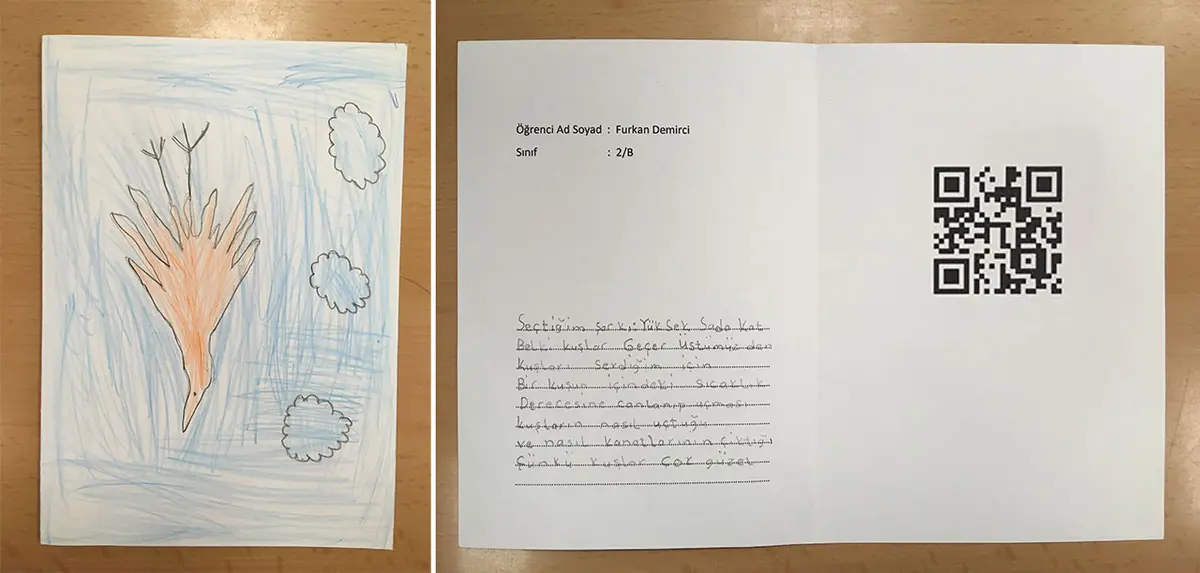 Öğrenci Ad Soyad : Furkan Demirci
Sınıf : 2/B
Seçtiğim şarkı: Yüksek Sada Kat
Belki kuşlar Geçer Üstümüzden
Kuşları Serdiğim için
Bir kuşun içindeki Sıcarlık
Derecesine canlanıp uçması
kuşların nasıl uçtuğu
ve nasıl kanatlarının çıktığı
Çünkü kuşlar Çok güzel